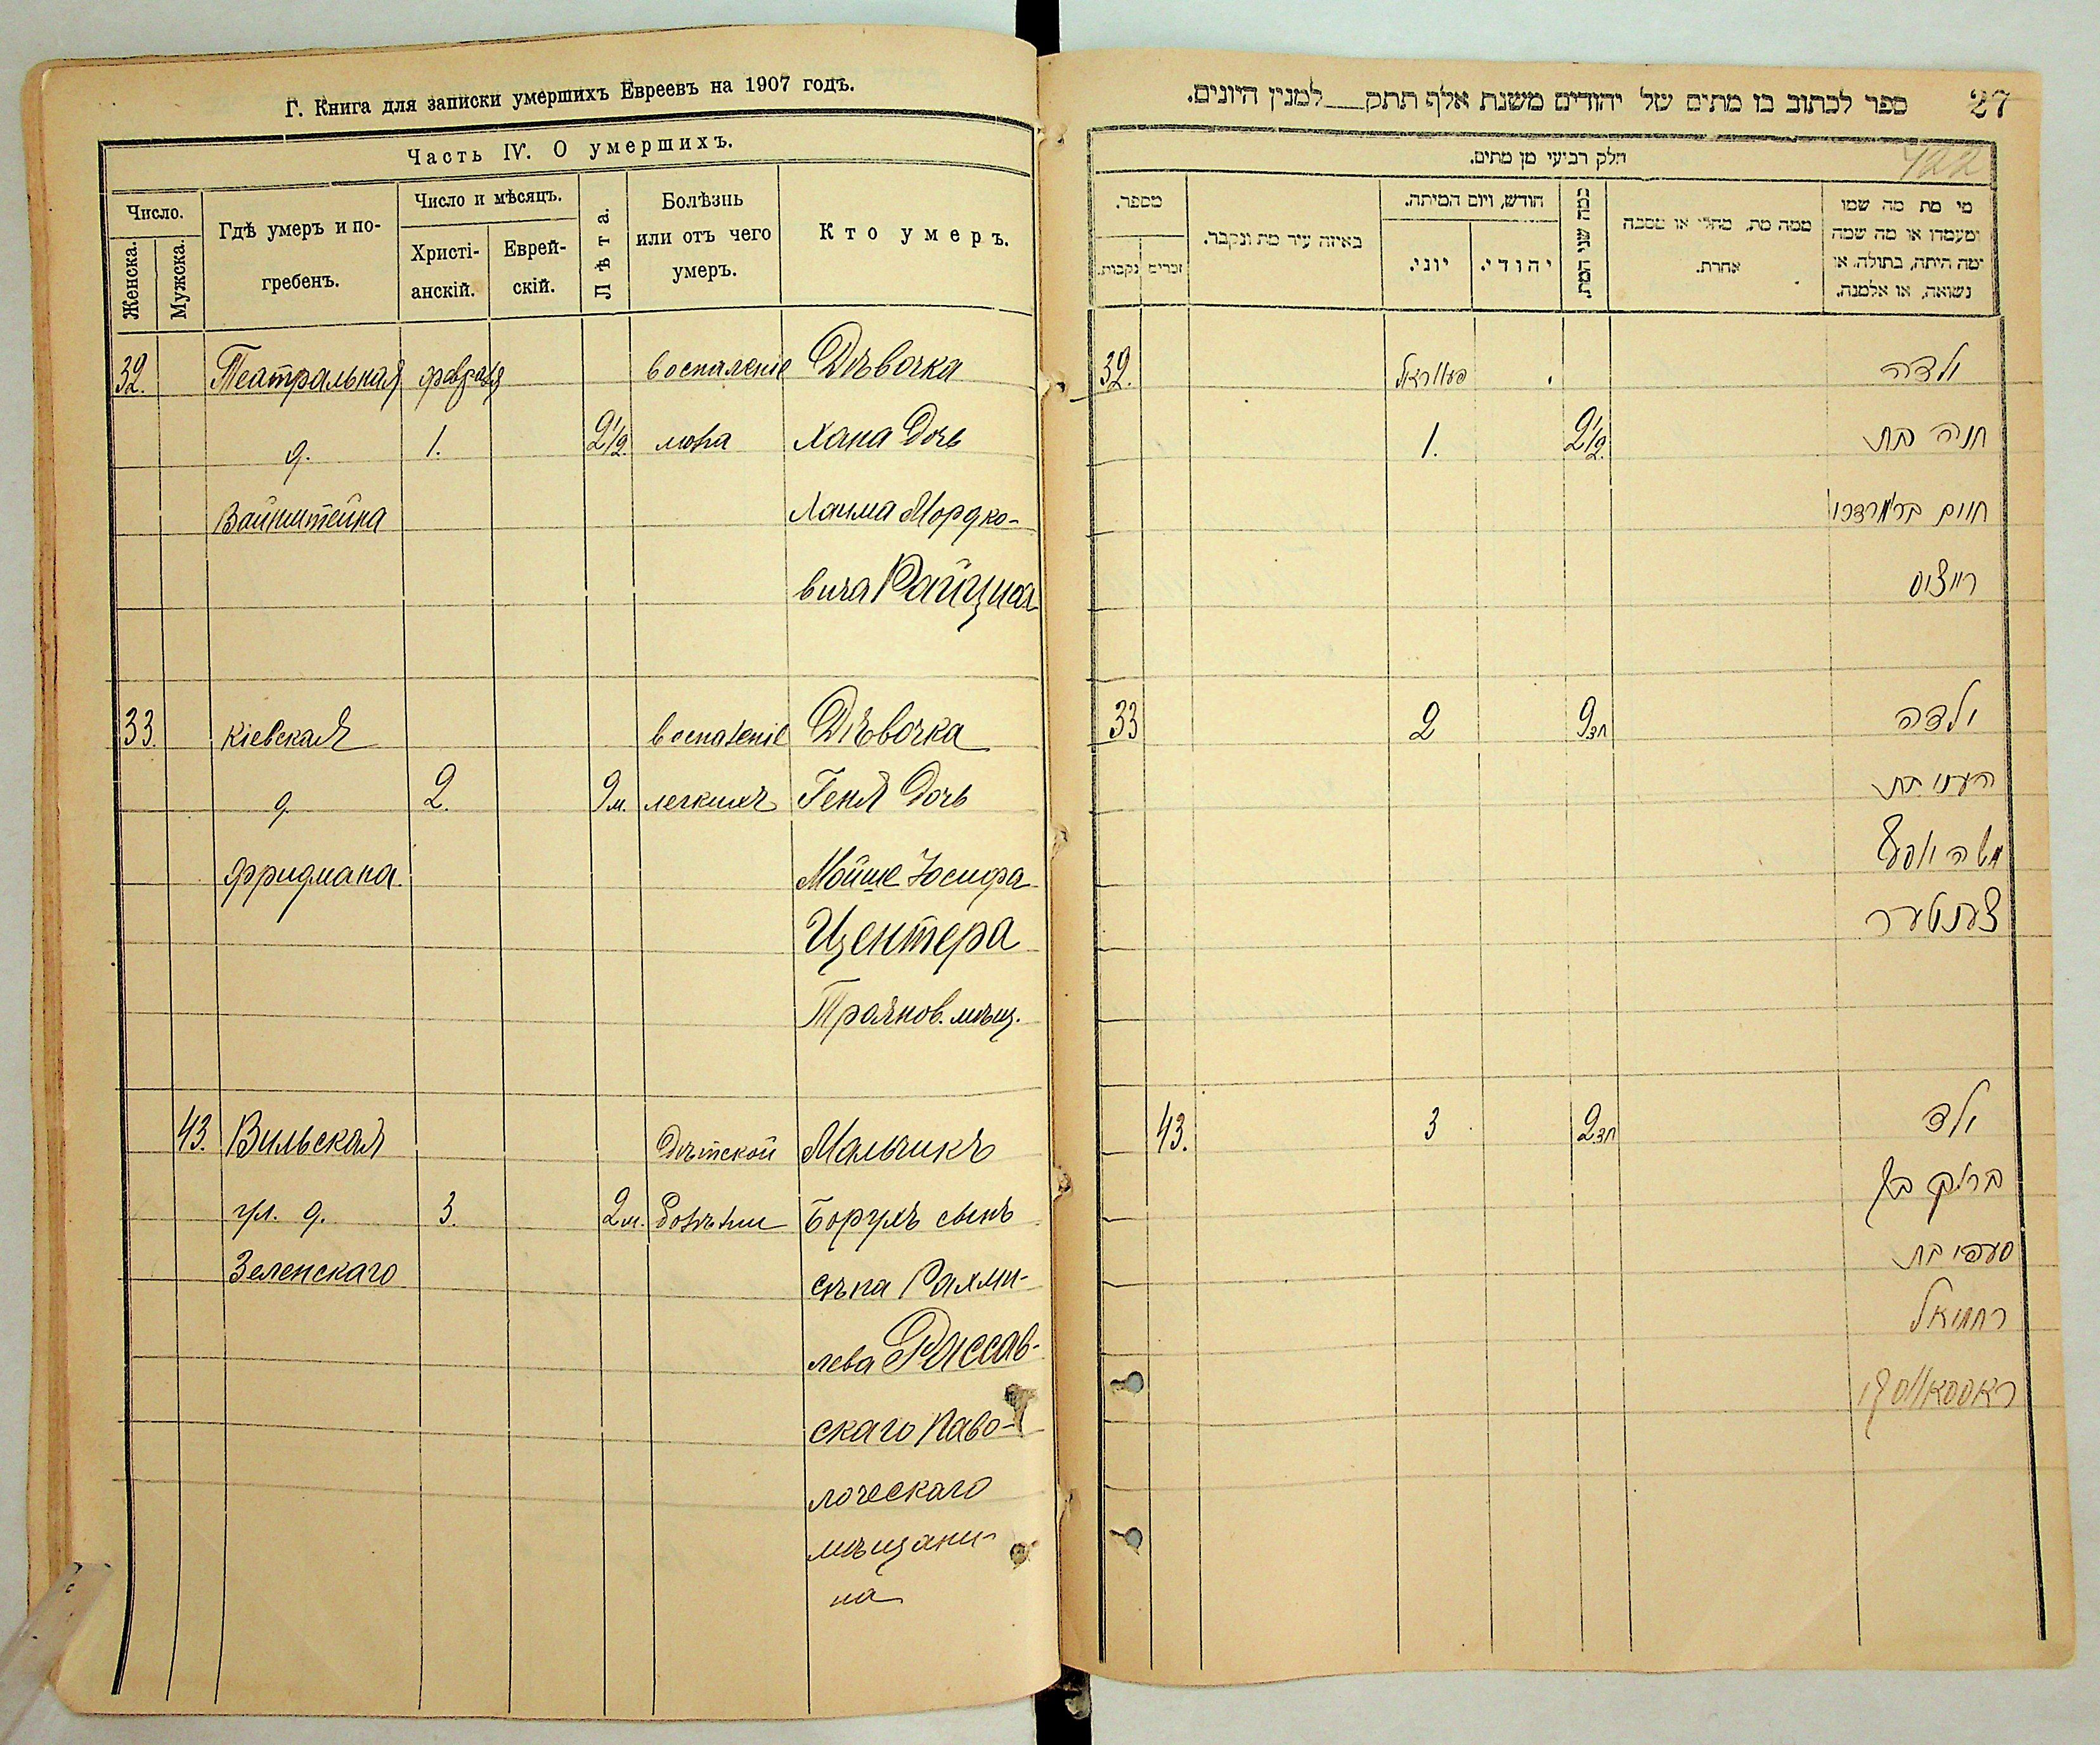 Г. Книга для записки умершихъ Евреевъ на 1907 годъ.
Часть IV. О умершихъ.
Число.
Женска.
Мужска.
Гдѣ умеръ и по-
гребенъ.
Число и мѣсяцъ.
Христі-
анскій.
Еврей-
скій.
Лѣта.
Болѣзнь
или отъ чего
умеръ.
Кто умеръ.
32. Театральная февраля воспаленіе Дѣвочка
д. 1. 2 1/2. мозга Хана дочь
Вайнштейна Хаима Мордко-
вича Райциса
33. Кіевская воспаленіе Дѣвочка
д. 2. 9 м. легкихъ Геня дочь
Фридмана Мойше Іосифа
Центера
Троянов. мѣщ.
43. Вильская Дѣтской Мальчикъ
ул. д. 3. 2 м. болѣзни Борухъ сынъ
Зеленскаго Рахми-
лева Рассав-
скаго Паво-
лоческаго
мѣщани-
на
27 ספר לכתוב בו מתים של יהודים משנת אלף תתק למנין היונים.
422
חלק רביעי מן מתים.
מספר.
נקבות.
זכרים
באיזה עיר מת ונקבר.
חודש, ויום המיתה.
יוני.
יהודי.
כמה שני המת.
ממה מת, מחלי או מסבה
אחרת.
מי מת מה שמו
ומעמדו או מה שמה
ומה היתה, בתולה, או
נשואה, או אלמנה.
32. פעווראל ילדה
1. 2 1/2. חנה בת
חיים בר מרדכי
רייציס
33 2 9 חד ילדה
העני בת
משה יוסף
צענטער
43. 3 2 חד ילד
ברוך בן
בת
רחמיאל
ראססאווסקי